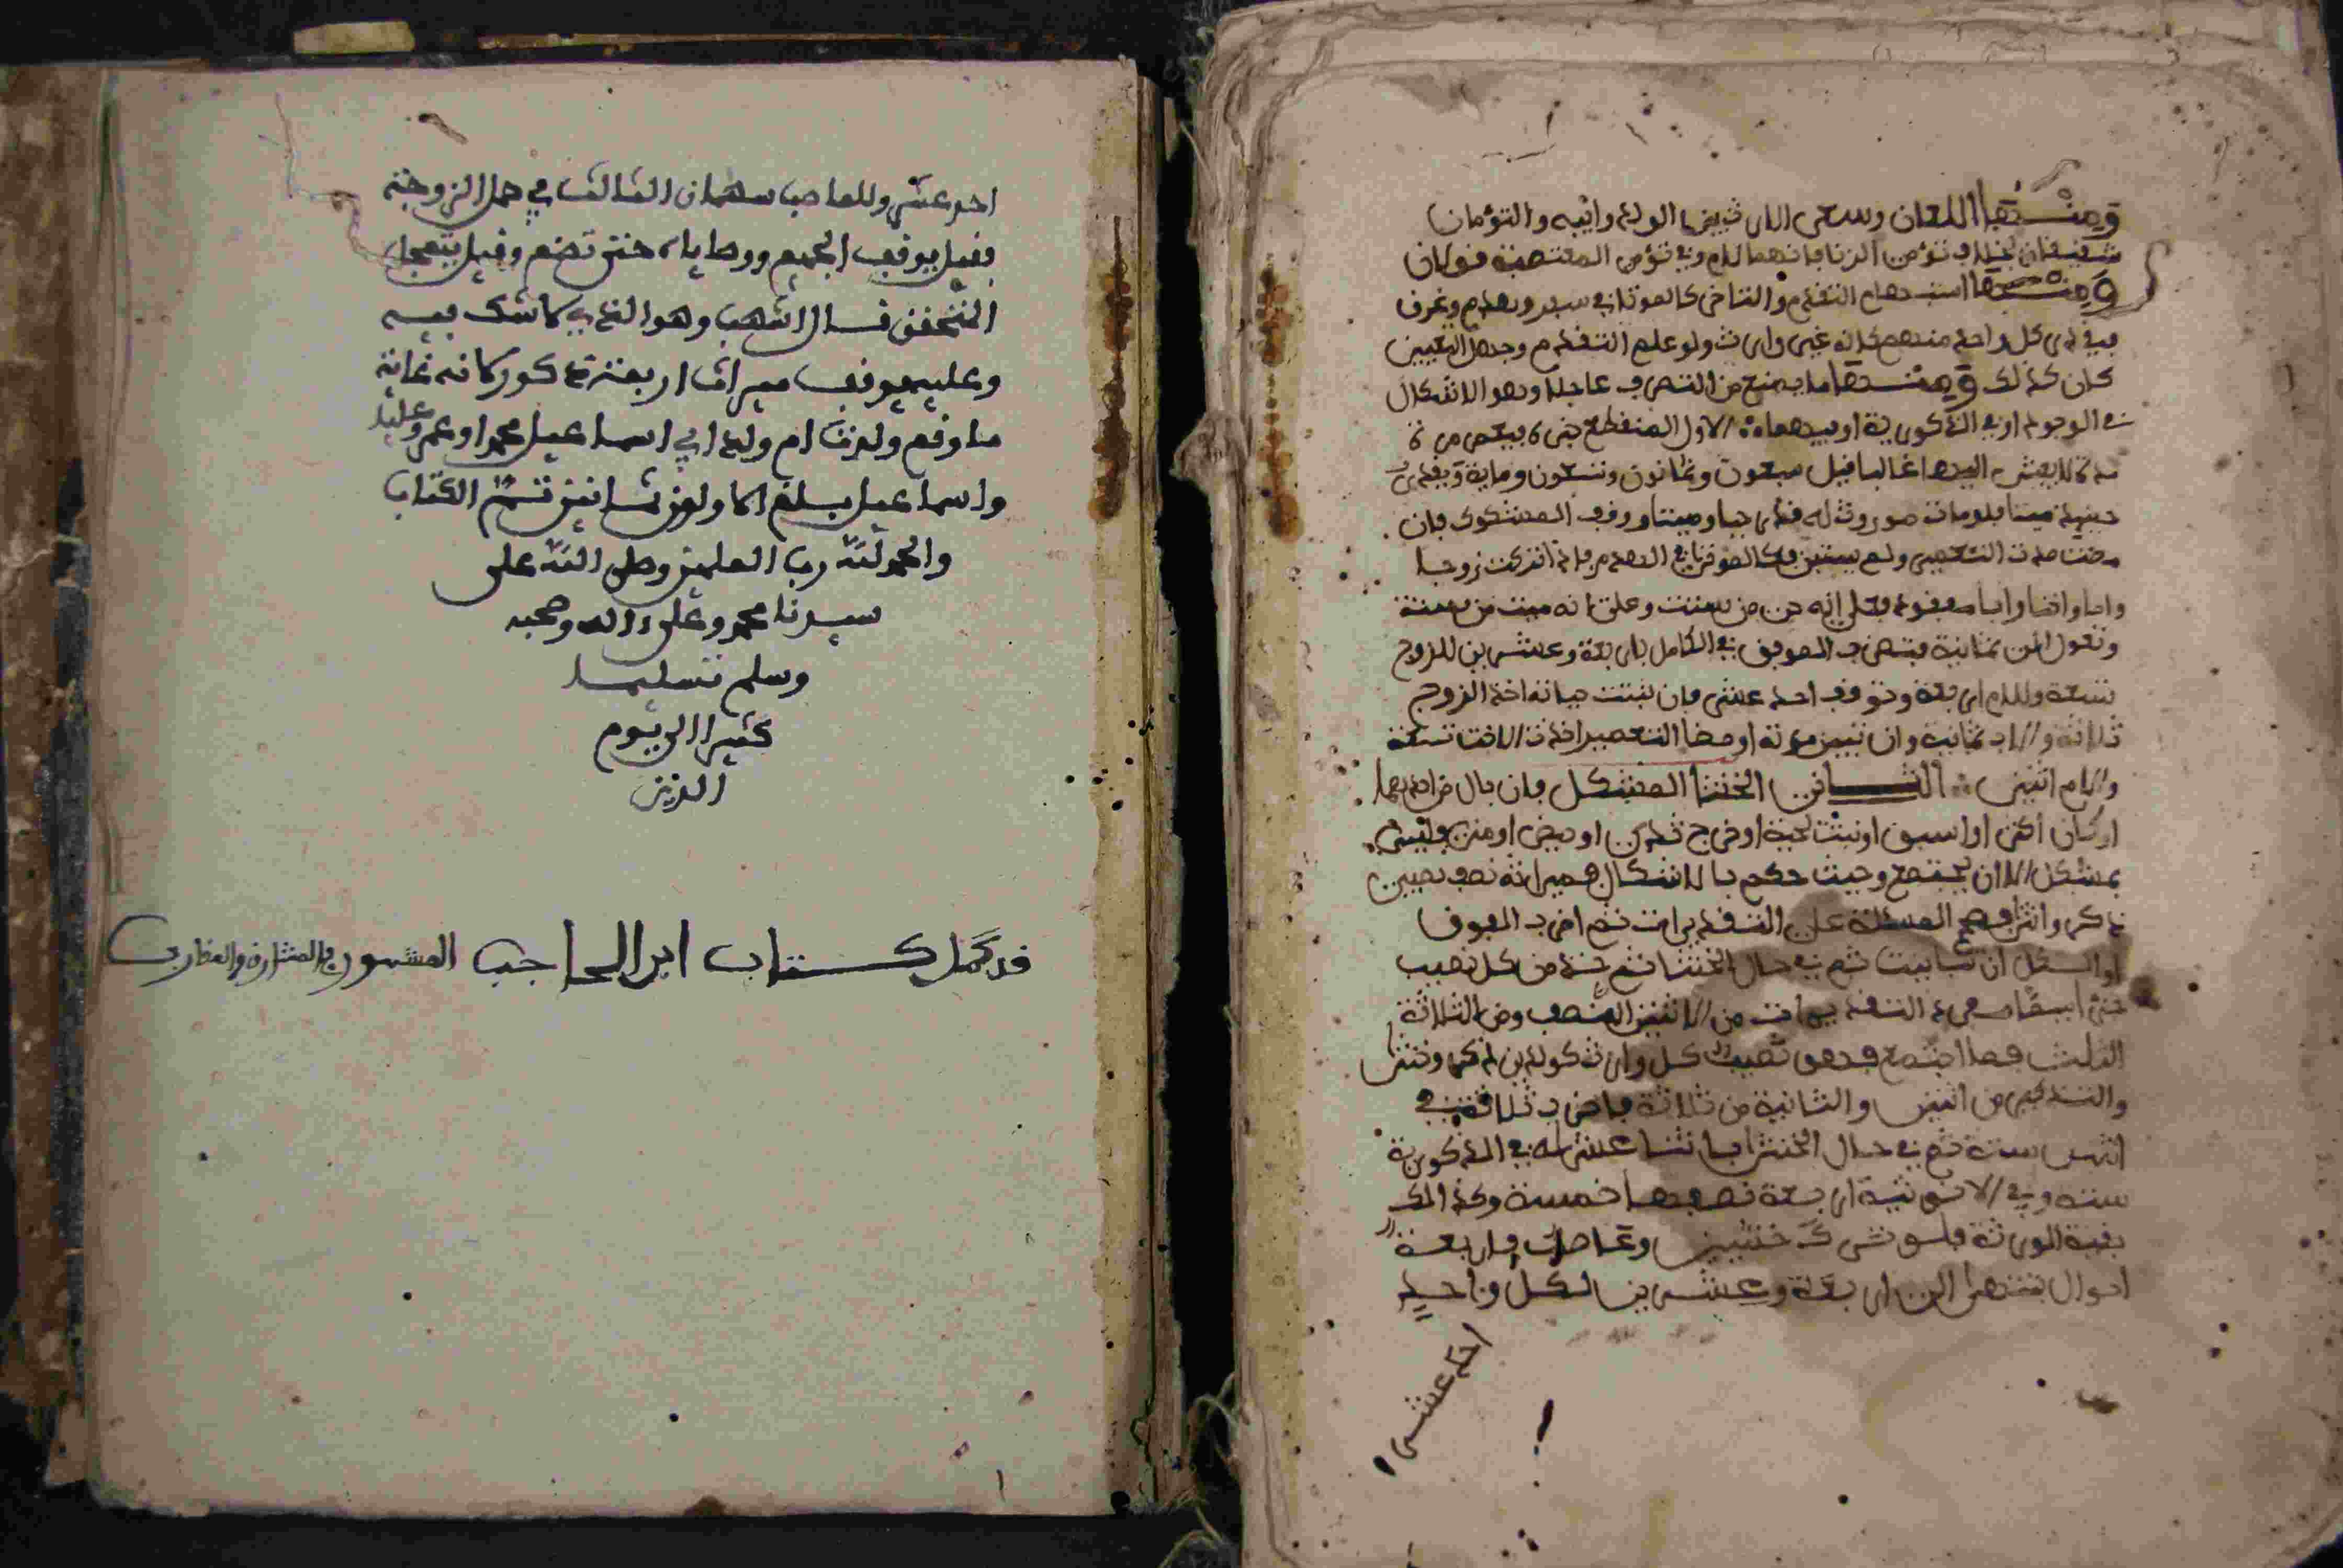 ومنها اللعان وسعى الارث بين الولد وابيه والتؤمان
شقيقان بخلاف تؤمي الزنا فانهما للام وفي تؤمي المغتصبة قولان
ومنها استبهام التقدم والتاخر كالموت في سفر وهدم وغرف
فيقدر كل واحد منهم كانه غير وارث ولو علم التقدم وجهل التعيين
كان كذلك ومنها ما يمنع من الصرف عاجلا وهو الاشكال
في الوجود او في الذكورية او فيهما الاول المنقطع خبره فيعمر
مدة لا يعيش اليها غالبا قيل سبعون وثمانون وتسعون وماية ويقدر
حينئذ ميتا فلو مات موروثه قدر حيا وميتا ووقف المشكوك فان
مضت مدة التعمير ولم يتبين فكالموتى في الهدم فاذا تركت زوجا
واما واختا وابا مفقودا فعلى انه حي من ستة وعلى انه ميت من ستة
وتعول الى ثمانية فتضرب الموفق في الكامل باربعة وعشرين للزوج
تسعة وللام اربعة وتوقف احد عشر فان ثبتت حياته اخذ الزوج
ثلاثة والاب ثمانية وان تبين موته او مضا التعمير اخذت الاخت تسعة
والام اثنين الثاني الخنثا المشكل فان بال من احدهما
او كان اكثر او اسبق او نبتت لحية او خرج ثدي او حيض او مني فليس
بمشكل الا ان يجتمع وحيث حكم بالاشكال فميراثه نصف نصيبي
ذكر وانثى فصحح المسئلة على التقديرات ثم اضرب الموفق
او الكل ان تباينت ثم في حال الخنثا ثم خذ من كل نصيب
من الاثنين النصف ومن الثلاثة
الثلث فما اجتمع فهو نصيب كل وارث كولدين ذكر وخنثى
والتذكير من اثنين والتانيث من ثلاثة فاضرب ثلاثة في
اثنين ستة ثم في حال الخنثى باثنا عشر له في الذكورية
ستة وفي الانوثية اربعة نصفها خمسة وكذلك
بقية الورثة فلو ترك خنثيين وعاصبا فاربعة
احوال تنتهي الى اربعة وعشرين لكل واحد
احد عشر
احد عشر وللعاصب سهمان الثالث في حمل الزوجة
فقيل يوقف الجميع ووصاياه حتى تضع وقيل يتعجل
المتحقق قال اشهب وهو الذي لا شك فيه
وعليه يوقف ميراث اربعة ذكور لانه غاية
ما وقع ولدت ام ولد ابي اسماعيل محمدا وعمر وعليا
واسماعيل بلغ الاولون ثمانين تم الكتاب
والحمد لله رب العلمين وصلى الله على
سيدنا محمد وعلى ءاله وصحبه
وسلم تسليما
كثيرا الى يوم
الدين
قد كمل كتاب ابن الحاجب المشهور بالمشارق والمغارب